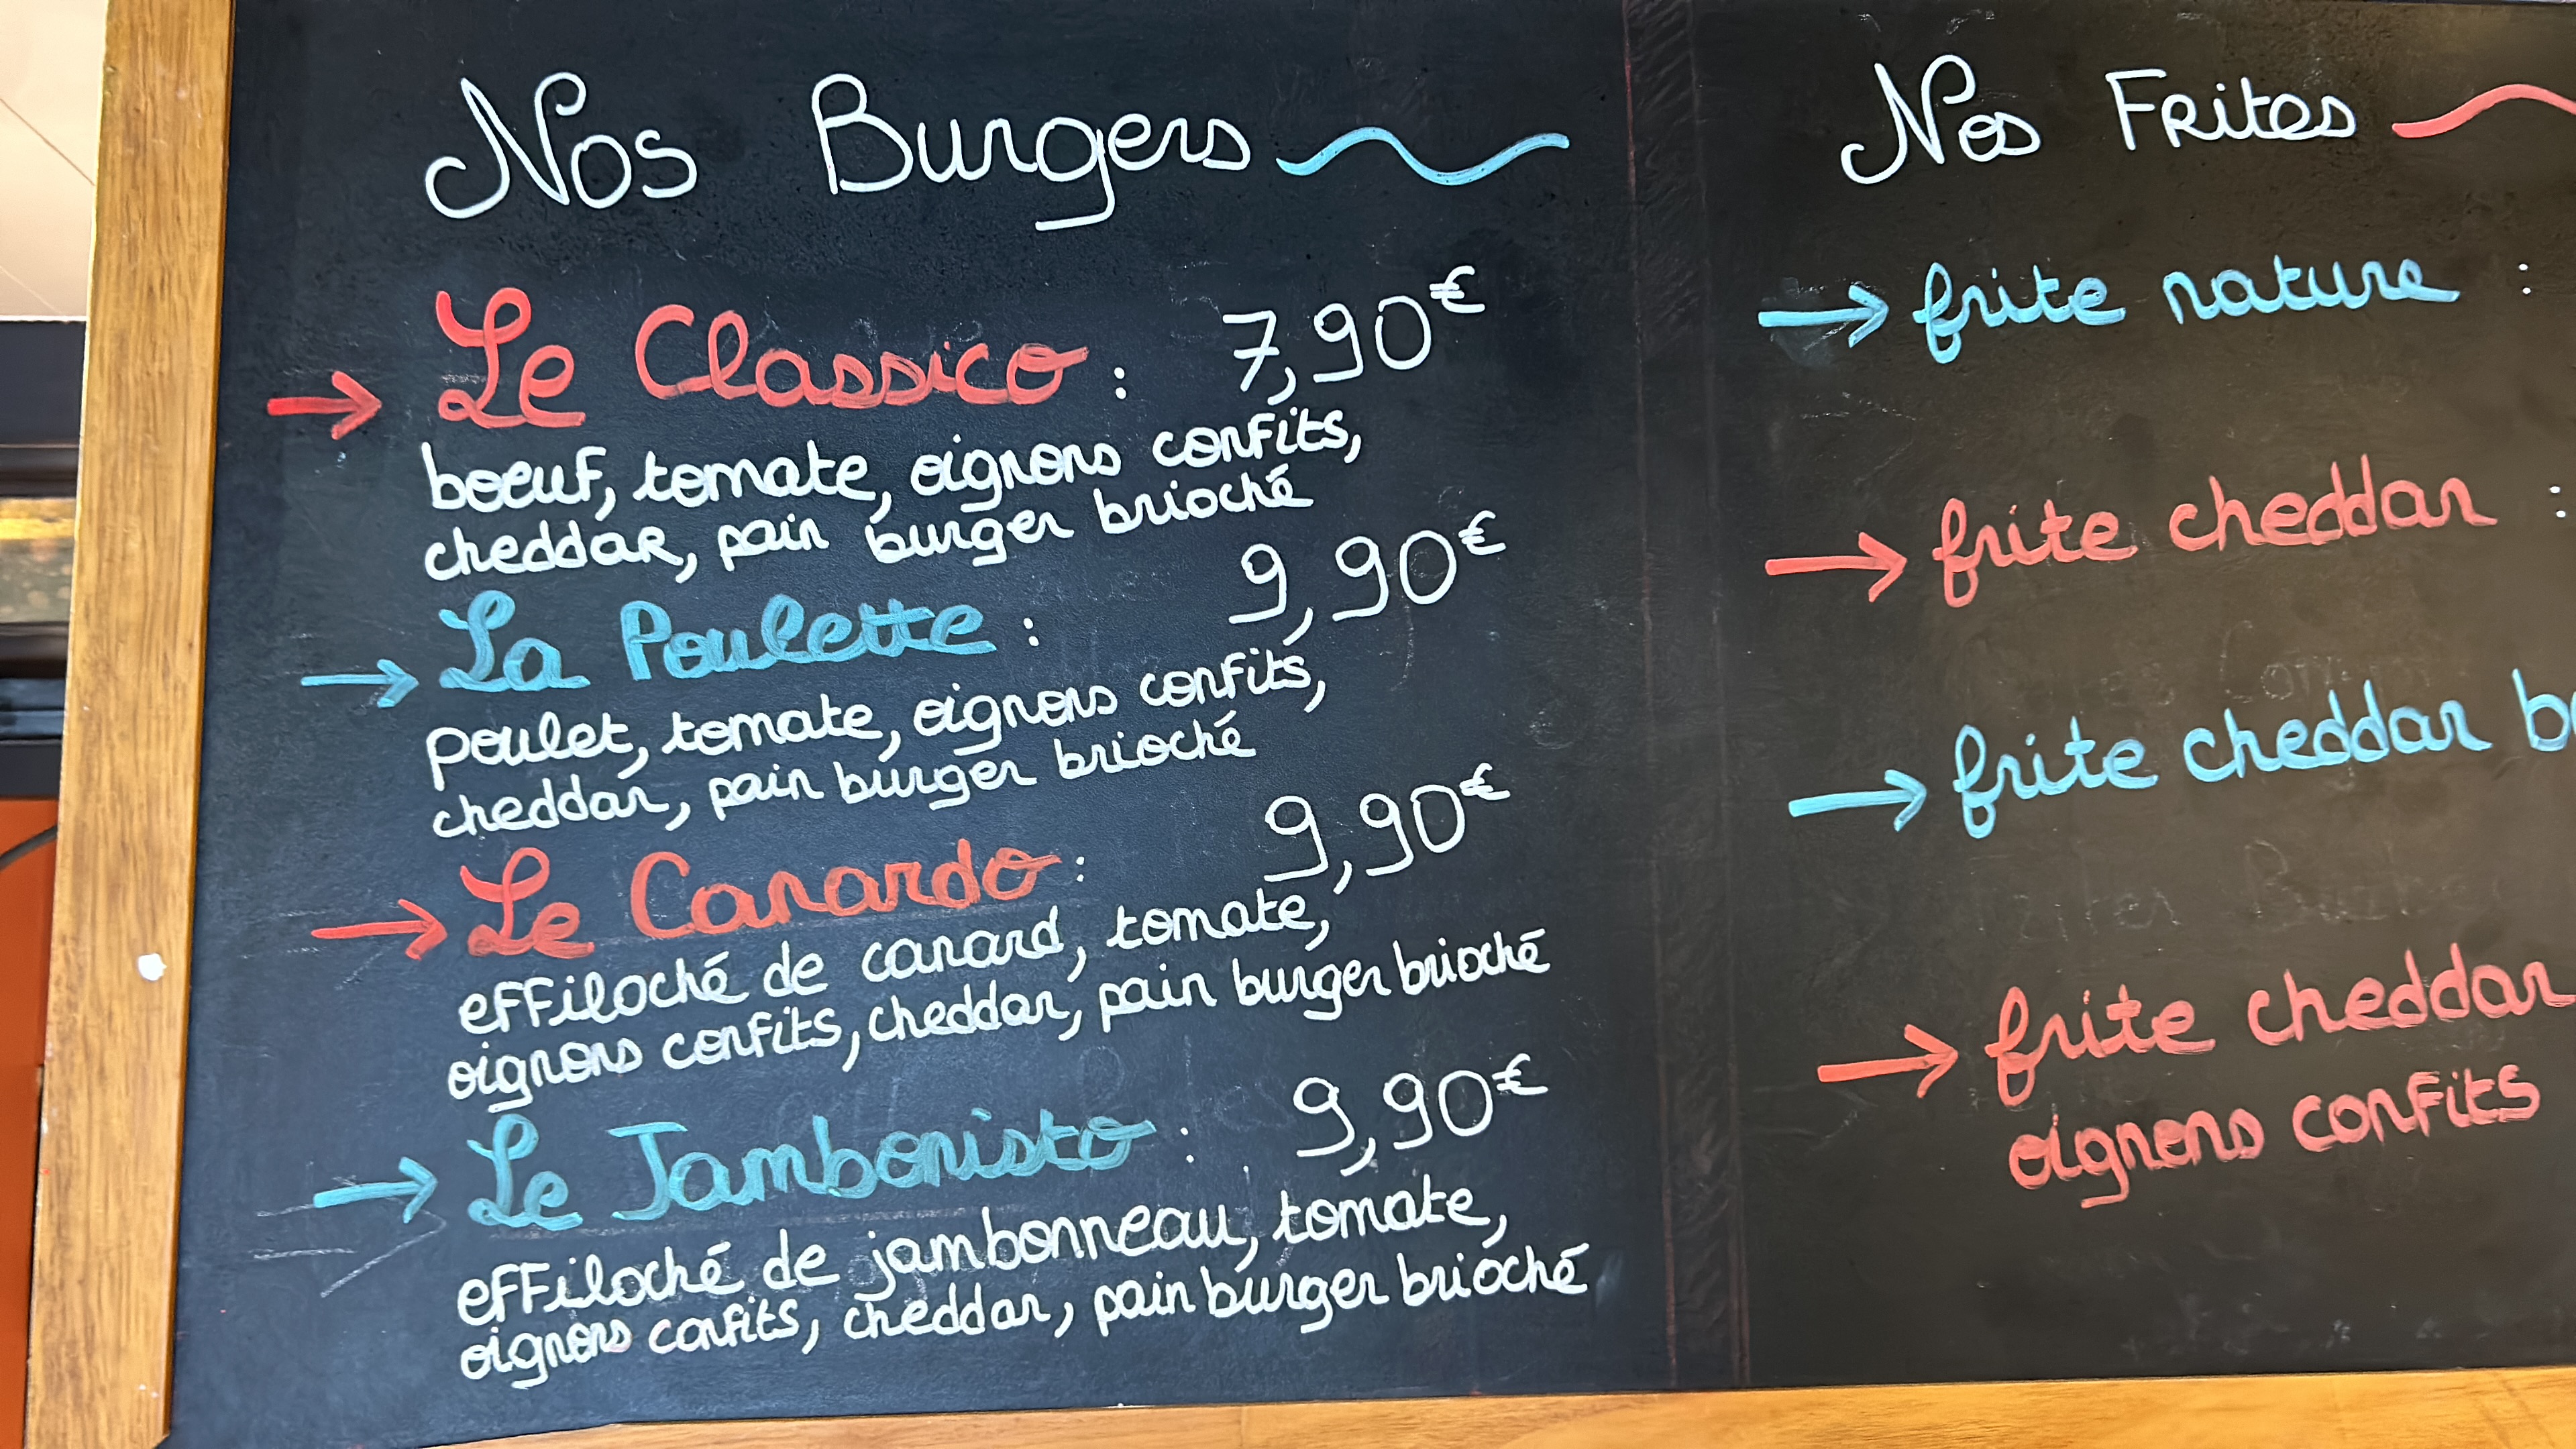 Nos Burgers
Le Classico : 7,90€
boeuf, tomate, oignons confits,
cheddar, pain burger brioché
La Poulette : 9,90€
poulet, tomate, oignons confits,
cheddar, pain burger brioché
Le Canardo : 9,90€
effiloché de canard, tomate,
oignons confits, cheddar, pain burger brioché
Le Jambonisto : 9,90€
effiloché de jambonneau, tomate,
oignons confits, cheddar, pain burger brioché
Nos Frites
frite nature :
frite cheddar :
frite cheddar
frite cheddar
oignons confits